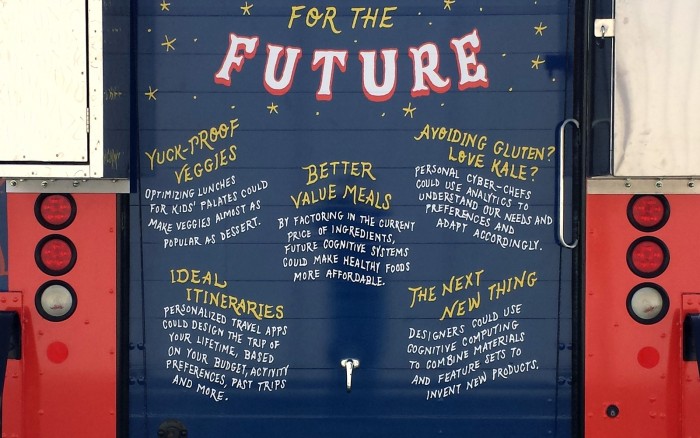 FOR THE
FUTURE
YUCK-PROOF
VEGGIES
OPTIMIZING LUNCHES
FOR KIDS' PALATES COULD
MAKE VEGGIES ALMOST AS
POPULAR AS DESSERT.
BETTER
VALUE MEALS
BY FACTORING IN THE CURRENT
PRICE OF INGREDIENTS,
FUTURE COGNITIVE SYSTEMS
COULD MAKE HEALTHY FOODS
MORE AFFORDABLE.
AVOIDING GLUTEN?
LOVE KALE?
PERSONAL CYBER-CHEFS
COULD USE ANALYTICS TO
UNDERSTAND OUR NEEDS AND
PREFERENCES AND
ADAPT ACCORDINGLY.
IDEAL
ITINERARIES
PERSONALIZED TRAVEL APPS
COULD DESIGN THE TRIP OF
YOUR LIFETIME, BASED
ON YOUR BUDGET, ACTIVITY
PREFERENCES, PAST TRIPS
AND MORE.
THE NEXT
NEW THING
DESIGNERS COULD USE
COGNITIVE COMPUTING
TO COMBINE MATERIALS
AND FEATURE SETS TO
INVENT NEW PRODUCTS.